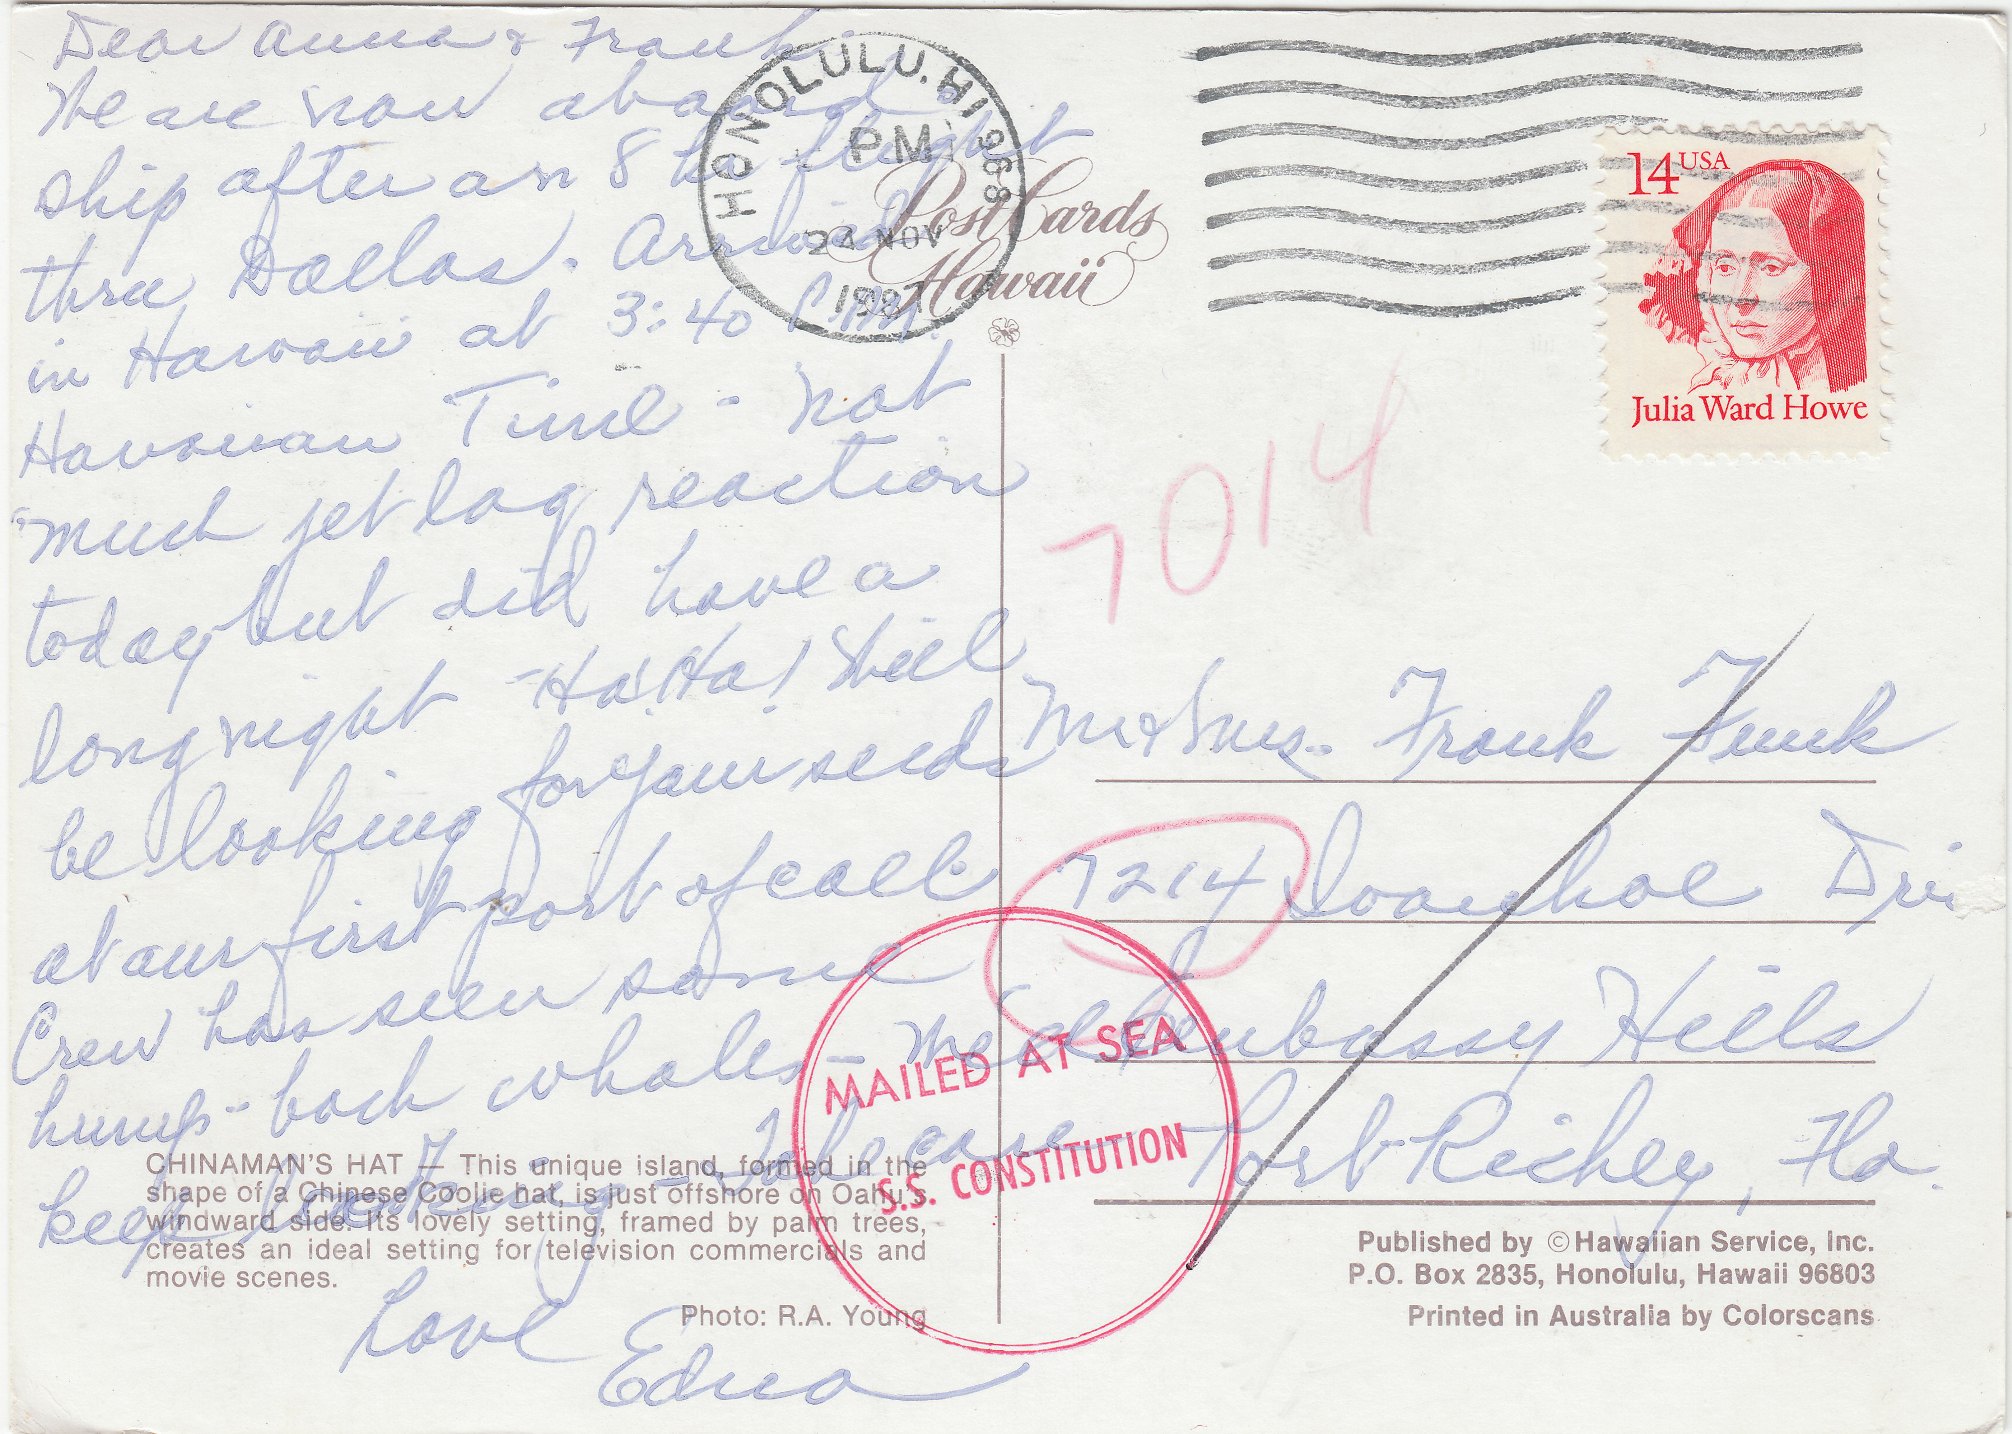 Dear Anna & Frank:
We are now aboard
ship after an 8 hr flight
thru Dallas. Arrived
in Hawaii at 3:40 P.M.
Hawaiian Time - not
much jet lag reaction
today but did have a
long night - Ha! Ha! Will
be looking for your seeds
at our first port of call.
Crew has seen some
hump-back whales - we'll
keep looking - Take care
Love
Edna
HONOLULU, HI 968
PM
24 NOV
1987
Post Cards
Hawaii
14 USA
Julia Ward Howe
7014
Mr & Mrs. Frank Funk
7214 Ivanhoe Dri
Embassy Hills
Port Richey, Fla.
MAILED AT SEA
S.S. CONSTITUTION
CHINAMAN'S HAT — This unique island, formed in the
shape of a Chinese Coolie hat, is just offshore on Oahu's
windward side. Its lovely setting, framed by palm trees,
creates an ideal setting for television commercials and
movie scenes.
Photo: R.A. Young
Published by © Hawaiian Service, Inc.
P.O. Box 2835, Honolulu, Hawaii 96803
Printed in Australia by Colorscans